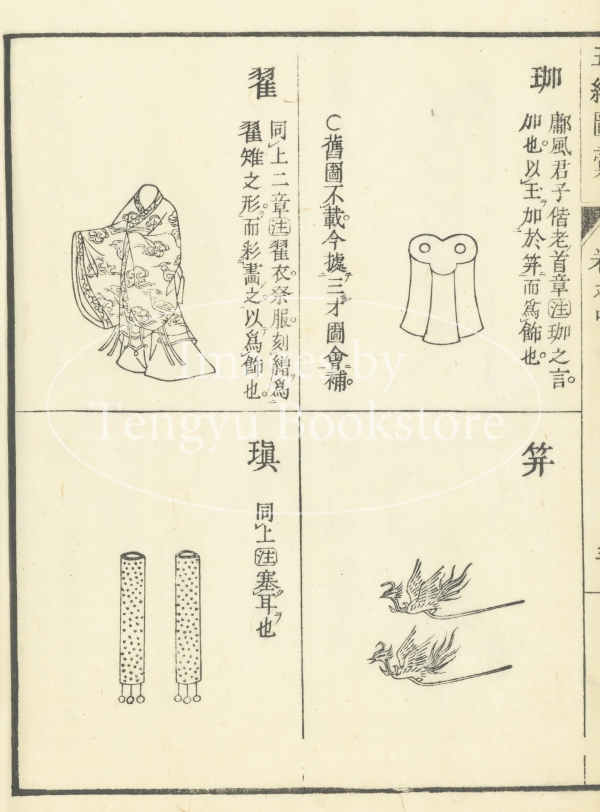 珈
鄘風君子偕老首章注珈之言
加也。以玉加於笄而爲飾也。
〇舊圖不載。今據三才圖會補。
笄
翟
同上二章注翟衣。祭服。刻繒爲
翟雉之形而彩畫之。以爲飾也。
瑱
同上注塞耳也
Images by
Tengyu Bookstore